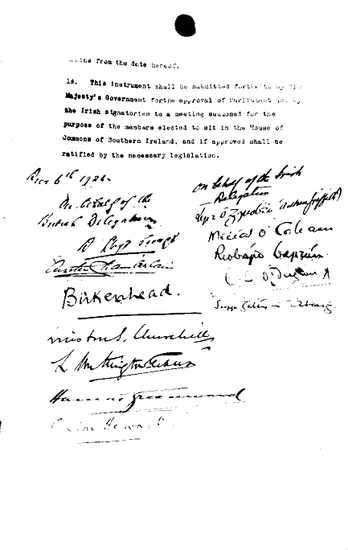 from the date hereof.
18. This instrument shall be submitted forthwith by His
Majesty's Government for the approval of Parliament and by
the Irish signatories to a meeting summoned for the
purpose of the members elected to sit in the House of
Commons of Southern Ireland, and if approved shall be
ratified by the necessary legislation.
Decr 6th 1921
On behalf of the
British Delegation
D Lloyd George
Austen Chamberlain
Birkenhead.
Winston S. Churchill
L Worthington-Evans
Hamar Greenwood
Gordon Hewart
On behalf of the Irish
Delegation
Art Ó Gríobhtha
Mícheál Ó Coileáin
Riobárd Bartún